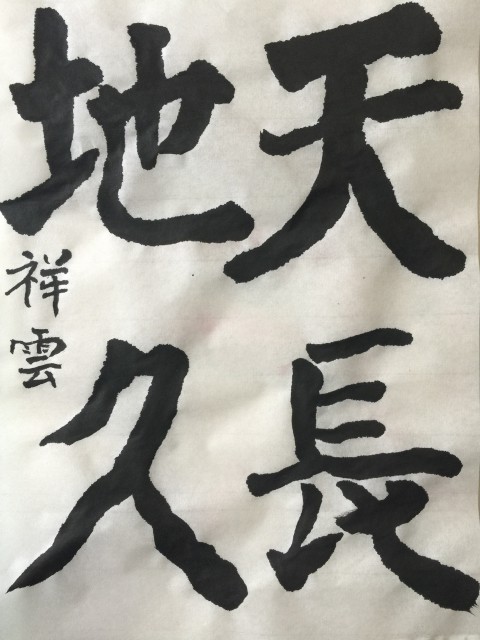 天長
地久
祥雲